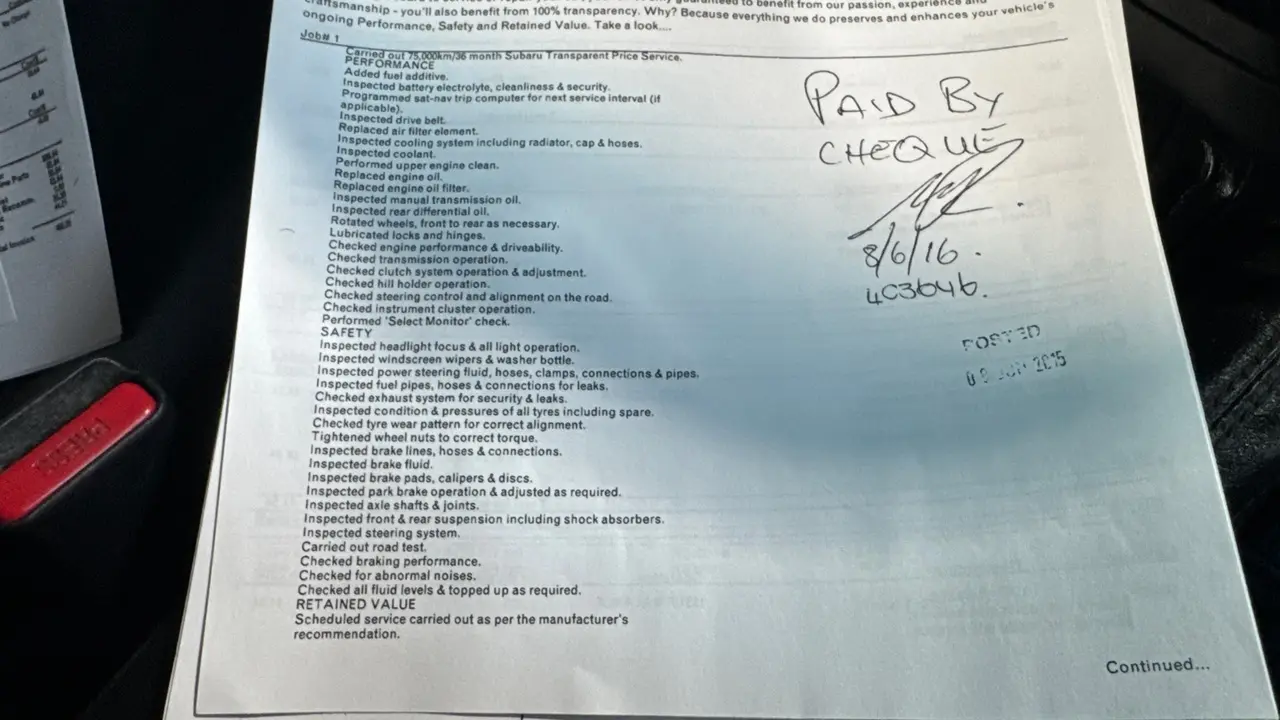 to benefit from our passion, experience and
craftsmanship - you'll also benefit from 100% transparency. Why? Because everything we do preserves and enhances your vehicle's
ongoing Performance, Safety and Retained Value. Take a look....
Job# 1
Carried out 75,000km/36 month Subaru Transparent Price Service.
PERFORMANCE
Added fuel additive.
Inspected battery electrolyte, cleanliness & security.
Programmed sat-nav trip computer for next service interval (if
applicable).
Inspected drive belt.
Replaced air filter element.
Inspected cooling system including radiator, cap & hoses.
Inspected coolant.
Performed upper engine clean.
Replaced engine oil.
Replaced engine oil filter.
Inspected manual transmission oil.
Inspected rear differential oil.
Rotated wheels, front to rear as necessary.
Lubricated locks and hinges.
Checked engine performance & driveability.
Checked transmission operation.
Checked clutch system operation & adjustment.
Checked hill holder operation.
Checked steering control and alignment on the road.
Checked instrument cluster operation.
Performed 'Select Monitor' check.
SAFETY
Inspected headlight focus & all light operation.
Inspected windscreen wipers & washer bottle.
Inspected power steering fluid, hoses, clamps, connections & pipes.
Inspected fuel pipes, hoses & connections for leaks.
Checked exhaust system for security & leaks.
Inspected condition & pressures of all tyres including spare.
Checked tyre wear pattern for correct alignment.
Tightened wheel nuts to correct torque.
Inspected brake lines, hoses & connections.
Inspected brake fluid.
Inspected brake pads, calipers & discs.
Inspected park brake operation & adjusted as required.
Inspected axle shafts & joints.
Inspected front & rear suspension including shock absorbers.
Inspected steering system.
Carried out road test.
Checked braking performance.
Checked for abnormal noises.
Checked all fluid levels & topped up as required.
RETAINED VALUE
Scheduled service carried out as per the manufacturer's
recommendation.
PAID BY
CHEQUE
8/6/16.
403646.
POSTED
2015
Continued...
PRESS